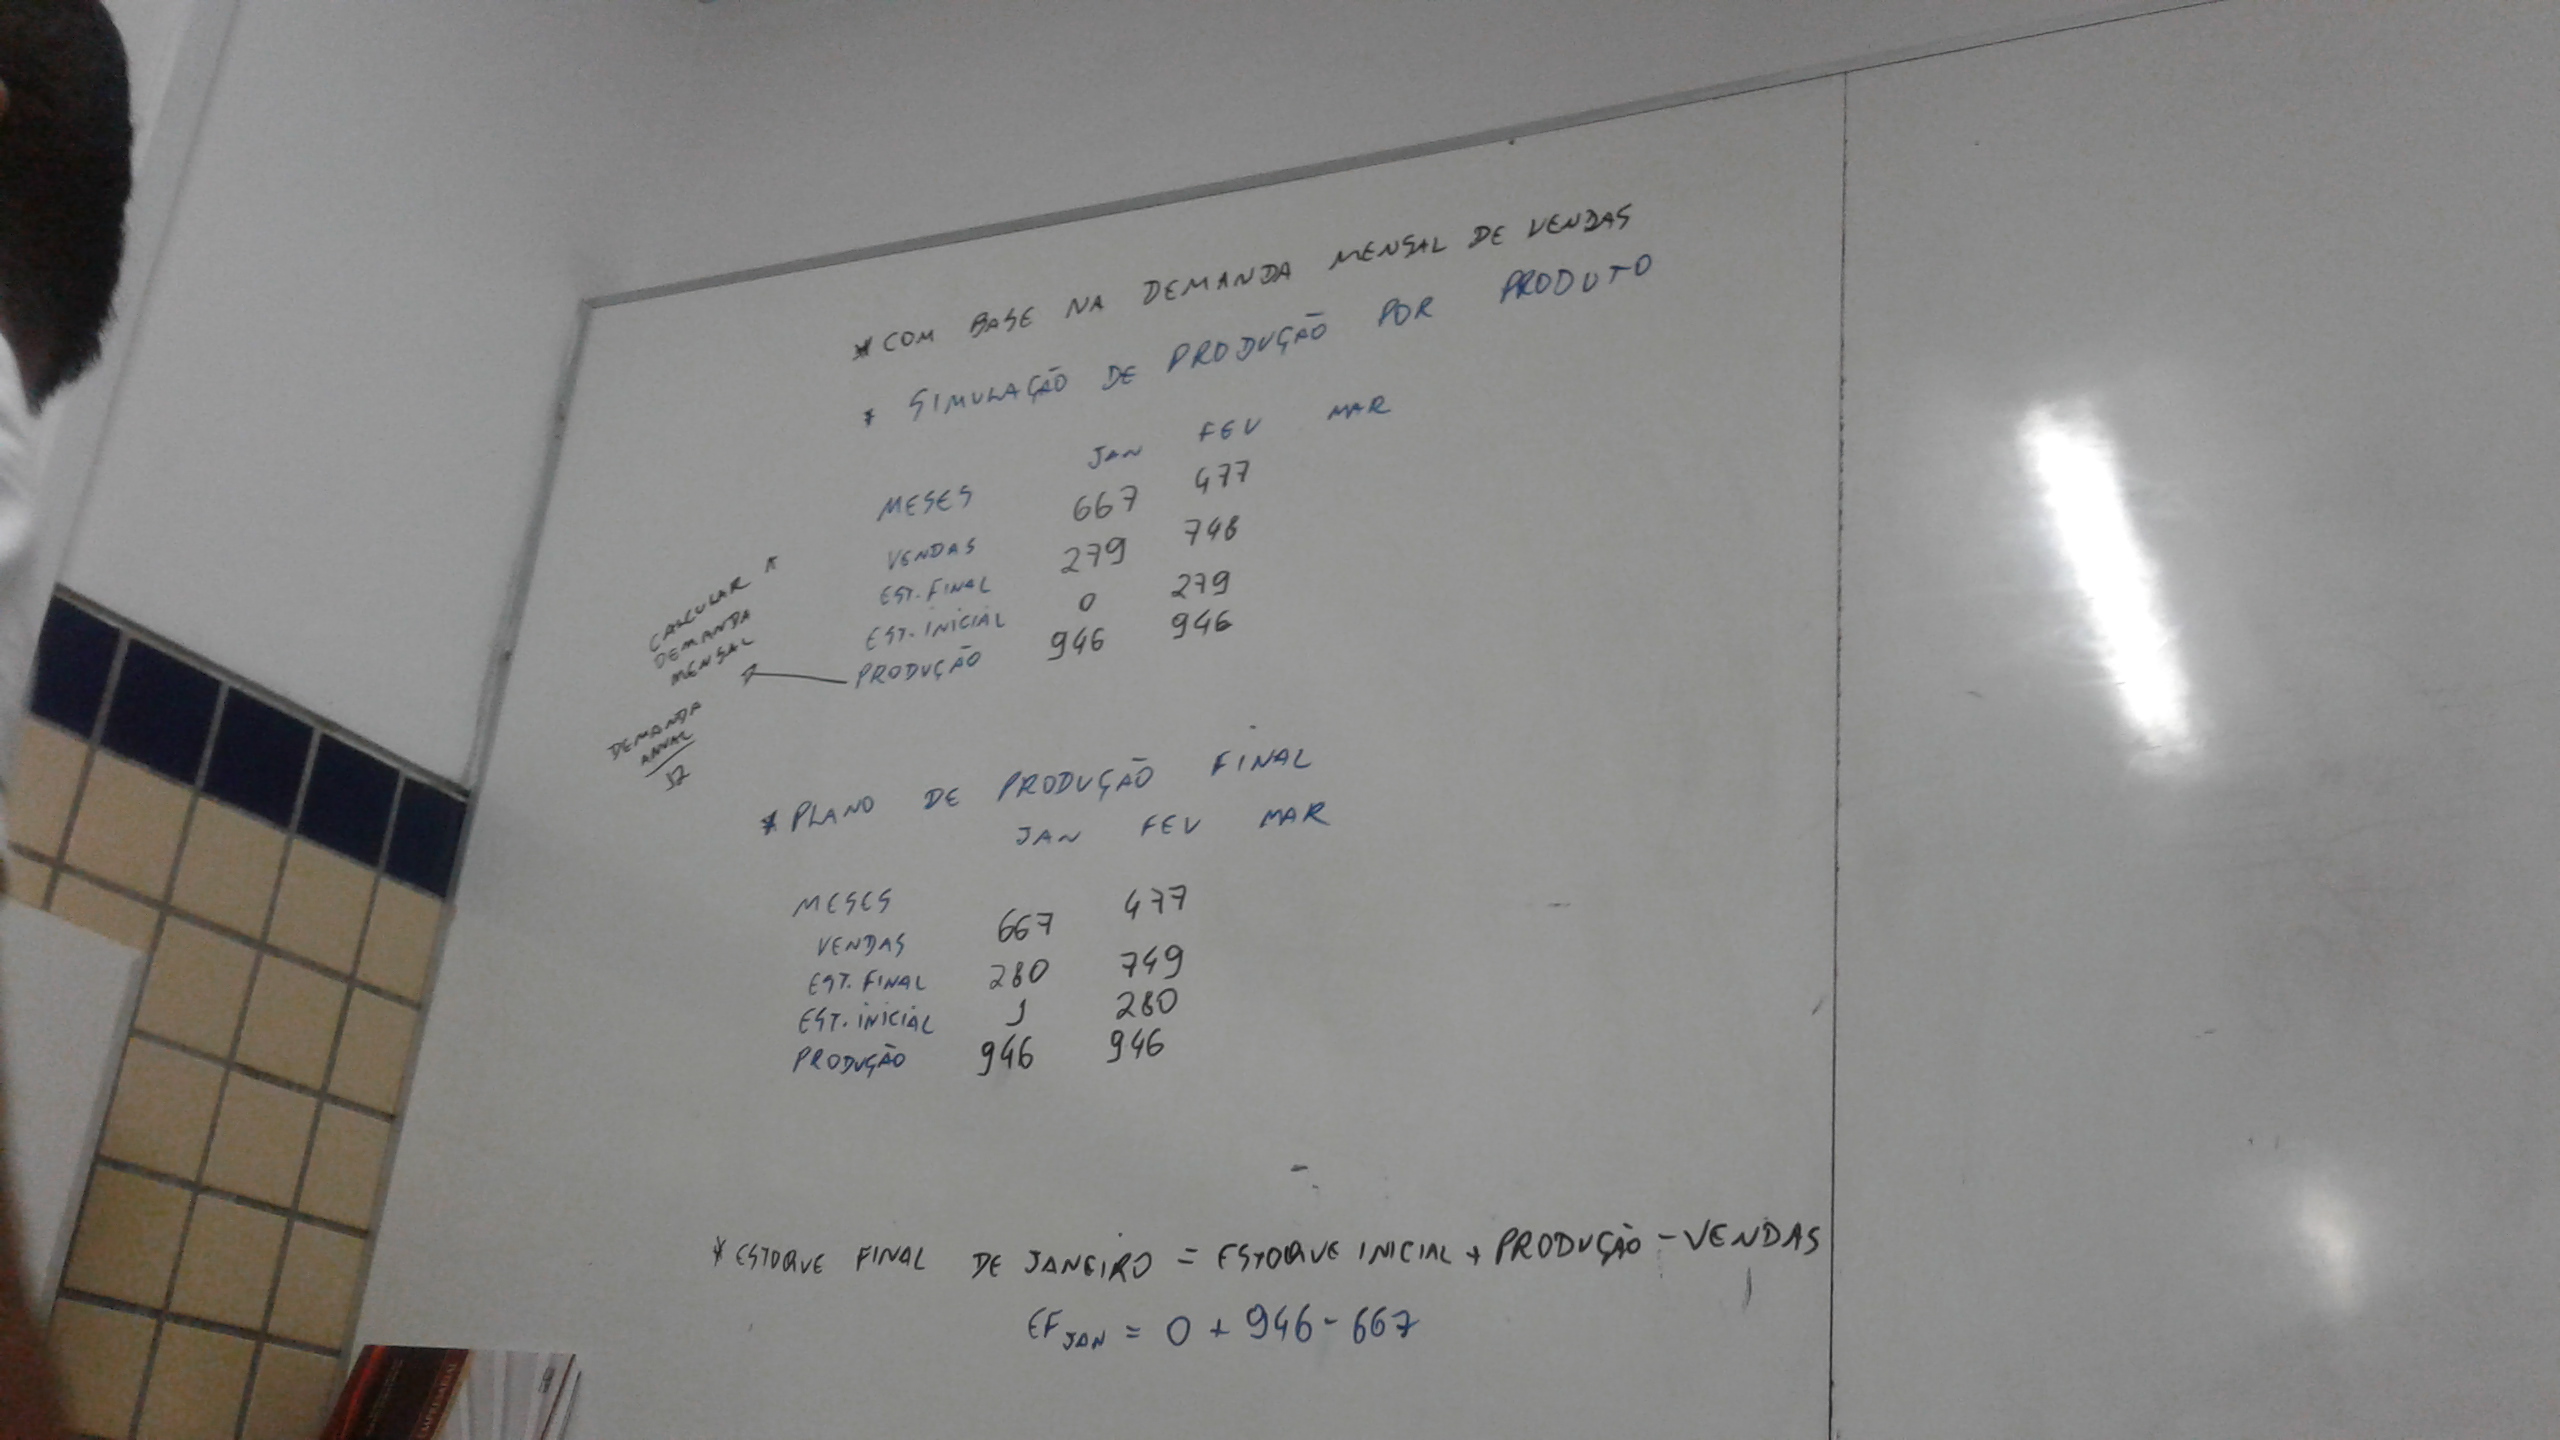 * COM BASE NA DEMANDA MENSAL DE VENDAS
* SIMULAÇÃO DE PRODUÇÃO POR PRODUTO
MESES JAN FEV MAR
VENDAS 667 477
EST. FINAL 279 748
EST. INICIAL 0 279
PRODUÇÃO 946 946
CALCULAR *
DEMANDA
MENSAL
DEMANDA
ANUAL
12
* PLANO DE PRODUÇÃO FINAL
MESES JAN FEV MAR
VENDAS 667 477
EST. FINAL 280 749
EST. INICIAL 1 280
PRODUÇÃO 946 946
* ESTOQUE FINAL DE JANEIRO = ESTOQUE INICIAL + PRODUÇÃO - VENDAS
EF JAN = 0 + 946 - 667